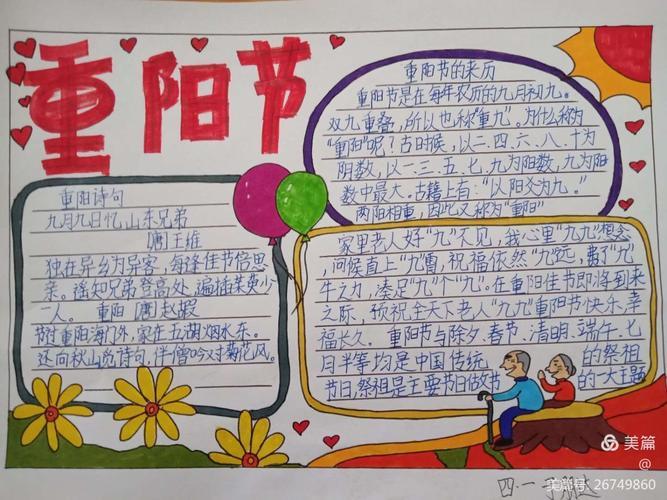 重阳节
重阳节的来历
重阳节是在每年农历的九月初九。
双九重叠,所以也称"重九"。为什么称为
"重阳"呢?古时候,以二.四.六.八.十为
阴数,以一.三.五.七.九为阳数,九为阳
数中最大。古籍上有:"以阳爻为九。"
两阳相重,因此又称为"重阳"
重阳诗句
九月九日忆山东兄弟
[唐]王维
独在异乡为异客,每逢佳节倍思
亲。遥知兄弟登高处,遍插茱萸少
一人。 重阳 [唐]赵嘏
节过重阳海门外,家在五湖烟水东。
还向秋山觅诗句,伴僧吟对菊花风。
家里老人好"九"不见,我心里"九九"想念,
问候直上"九"霄,祝福依然"九"远,费了"九"
牛之力,凑足"九"个"九"。在重阳佳节即将到来
之际,预祝全天下老人"九九"重阳节快乐,幸
福长久。 重阳节与除夕、春节、清明、端午、七
月半等均是中国传统 的祭祖
节日,祭祖是主要节日做故节 的一大主题
四.一
美篇
@
美篇号:26749860